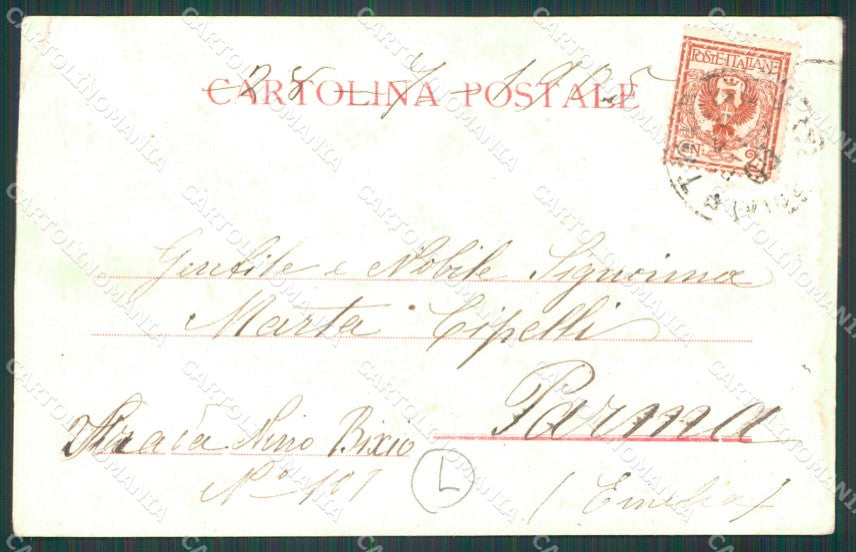 25-7-1905
CARTOLINA POSTALE
POSTE·ITALIANE
CEN. 2
Gentile e Nobile Signorina
Marta Cipelli
Parma
Strada Nino Bixio
No 107
L
(Emilia)
CARTOLINOMANIA